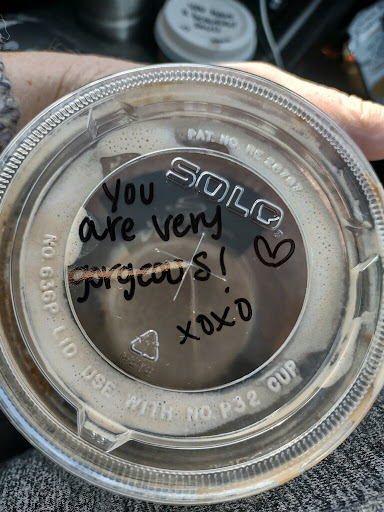 PAT. NO. RE.
SOLO
You
are very
gorgeous!
xoxo
NO. 636P LID USE WITH NO. P32 CUP